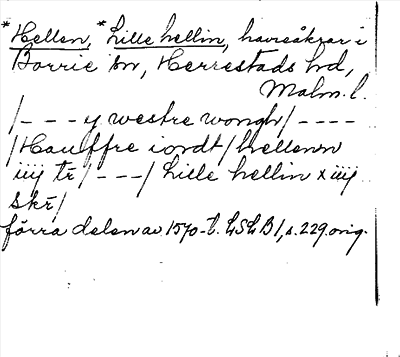 *Hellen, *Lille hellin, havreåkrar i
Borrie sn, Herrestads hd,
Malm. l.
/---y westre wongh/----
/Hauffre iordt/hellenn
iiij tr/---/Lille hellin x iiij
skr/
förra delen av 1570-t. LSLB1, s. 229. orig.